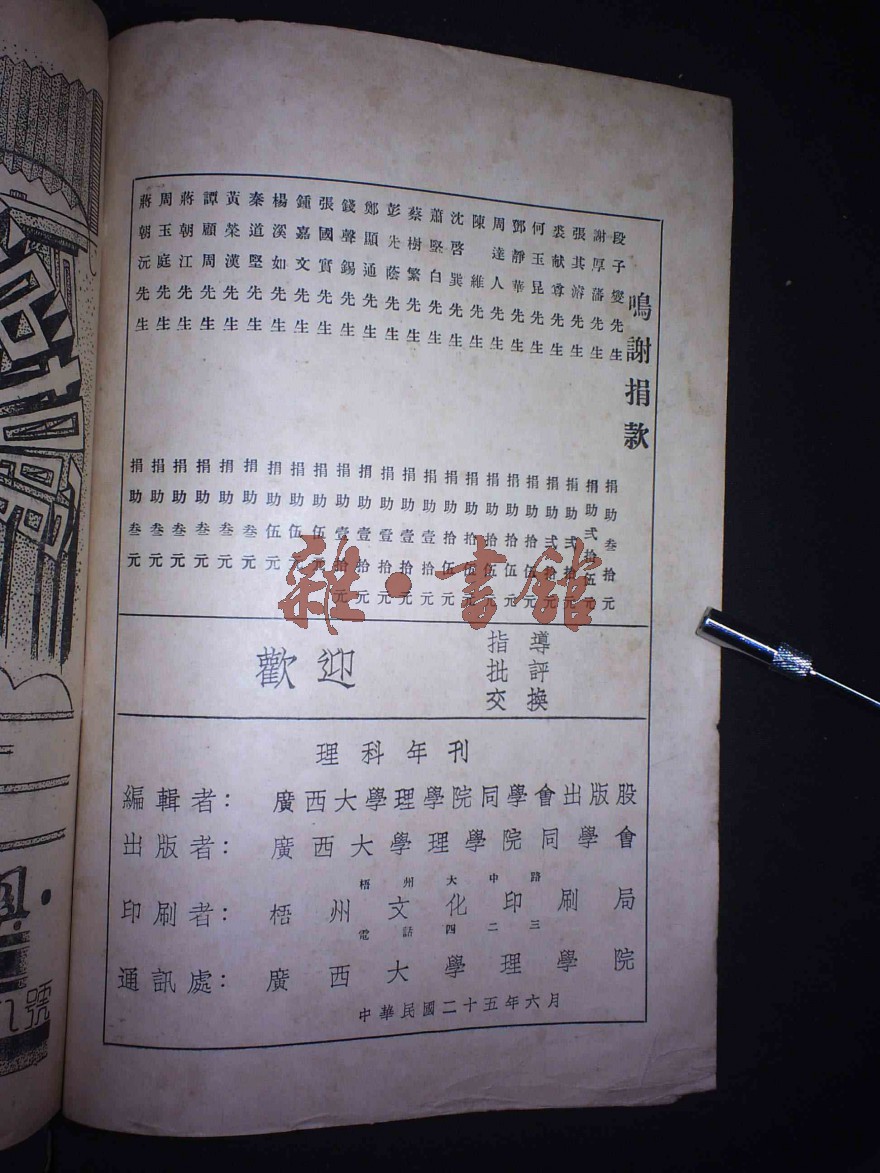 鳴謝捐款
段子燮先生 捐助叁拾元
謝厚藩先生 捐助弍拾伍元
張其溶先生 捐助弍拾元
裘献尊先生 捐助弍拾元
何玉昆先生 捐助拾伍元
鄧靜華先生 捐助拾伍元
周達人先生 捐助拾伍元
陳維先生 捐助拾伍元
沈啓巽先生 捐助拾伍元
蕭堅白先生 捐助壹拾元
蔡樹繁先生 捐助壹拾元
彭先蔭先生 捐助壹拾元
鄭顯通先生 捐助壹拾元
錢聲錫先生 捐助壹拾元
張國實先生 捐助伍元
鍾嘉文先生 捐助伍元
楊溪如先生 捐助伍元
秦道堅先生 捐助叁元
黃榮漢先生 捐助叁元
譚顧周先生 捐助叁元
蔣朝江先生 捐助叁元
周玉庭先生 捐助叁元
蔣朝沅先生 捐助叁元
雜·書館
歡迎
指導
批評
交換
理科年刊
編輯者：廣西大學理學院同學會出版股
出版者：廣西大學理學院同學會
梧州大中路
印刷者：梧州文化印刷局
電話四二三
通訊處：廣西大學理學院
中華民國二十五年六月
號